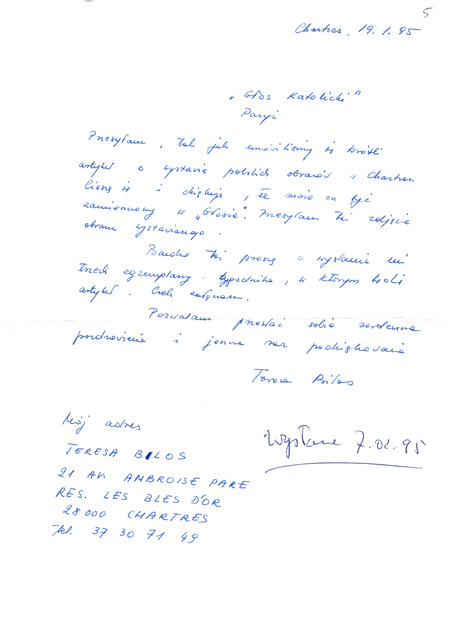 5
Chartres, 19.1.95
"Głos Katolicki"
Paryż
Przesyłam, tak jak umówiliśmy się krótki
artykuł o wystawie polskich obrazów w Chartres.
Cieszę się i dziękuję, że może on być
zamieszczony w "Głosie". Przesyłam też zdjęcie
obrazu wystawianego.
Bardzo też proszę o wysłanie mi
trzech egzemplarzy tygodnika, w którym będzie
artykuł.
Pozwalam przesłać sobie serdeczne
pozdrowienia i jeszcze raz podziękowania
Teresa Bilos
Mój adres
TERESA BILOS
21 AV. AMBROISE PARE
RES. LES BLES D'OR
28000 CHARTRES
tel. 37 30 71 49
Wysłane 7.02.95